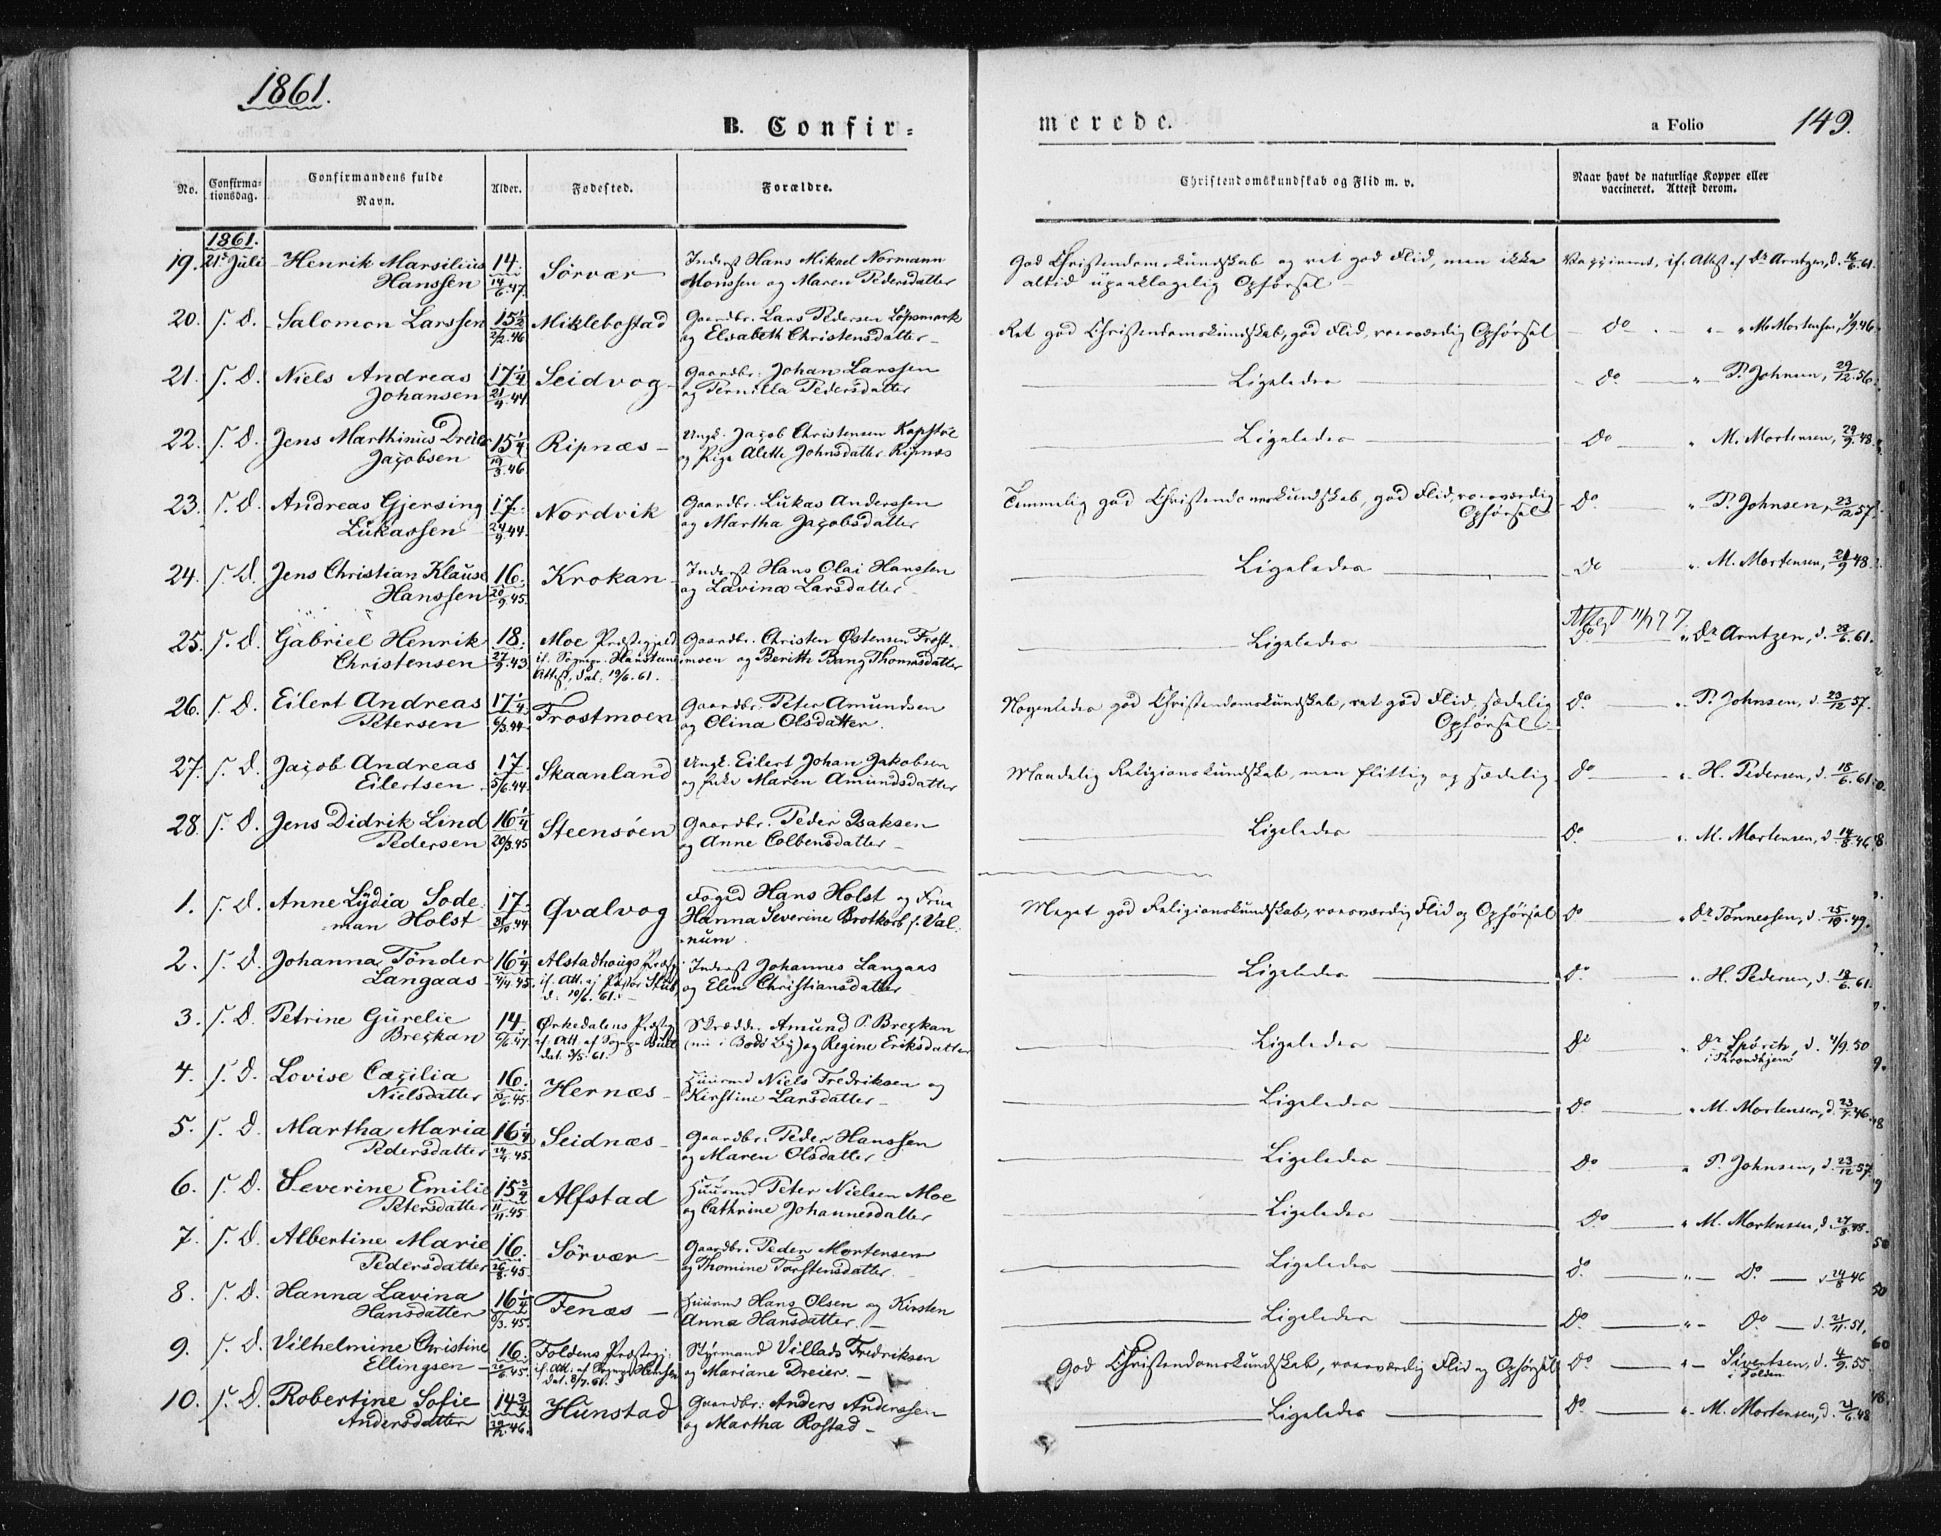 1861.
B. Confir-
merede.
a Folio
149.
No.
Confirma-
tionsdag.
Confirmandens fulde
Navn.
Alder.
Fødested.
Forældre.
Christendomskundskab og Flid m. v.
Naar havt de naturlige Kopper eller
vaccineret. Attest derom.
1861.
19. 21de Juli Henrik Marsilius 14. Sörvær Inderst Hans Mikael Normann God Christendomskundskab og ret god Flid, men ikke Vaccinered, if. Attest af Dr Arntzen, d. 16/6.61.
Hanssen 14/6.47. Monssen og Maren Pedersdatter altid upaaklagelig Opførsel
20. s. D. Salomon Larssen 15 1/2 Miklebostad Gaardbr. Lars Pedersen Löpsmark Ret god Christendomskundskab, god Flid, roesværdig Opførsel do " M. Mortensen, 1/9.46.
2/2.46 og Elsabeth Christensdatter
21. s. D. Niels Andreas 17 1/4 Seidvog Gaardbr. Johan Larssen Ligeledes do " P. Johnsen, 29/12.56.
Johansen 21/4.44 og Pernilla Pedersdatter
22. s. D. Jens Marthinus Dreier 15 1/4 Ripnæs Ungk. Jacob Christensen Ligeledes Do " M. Mortensen, 29/9.48.
Jacobsen 19/3.46 og Pige Alette Johnsdatter Ripnæs
23. s. D. Andreas Gjersing 17. Nordvik Gaardbr. Lukas Anderssen Temmelig god Christendomskundskab, god Flid, roesværdig Do. " P. Johnsen, 23/12.57.
Lukassen 24/9.44. og Martha Jacobsdatter Opførsel
24. s. D. Jens Christian Klause 16. Krokan Inderst Hans Olai Hanssen Ligeledes Do " M. Mortensen, 21/9.48.
Hanssen 20/9.45. og Lavina Larsdatter
Attest 11/4 77
25. s. D. Gabriel Henrik 18. Moe Præstegjeld Gaardbr. Christen Østensen Frost- Ligeledes do " Dr Arntzen, d. 23/6.61.
Christensen 27/9.43 if. Sognepr. Hansteens moen og Berith Bang Thomasdatter
Attest, dat. 19/6.61.
26. s. D. Eilert Andreas 17 1/4 Frostmoen Gaardbr. Peter Amundsen Nogenledes god Christendomskundskab, ret god Flid, sædelig do. " P. Johnsen, d. 23/12.57.
Petersen 6/3.44. og Olina Olsdatter. Opførsel
27. s. D. Jacob Andreas 17 Skaanland Ungk. Eilert Johan Jakobsen Maadelig Religionskundskab, men flittig og sædelig do " H. Pedersen, d. 18/6.61.
Eilertsen 5/6.44. og Enke Maren Amundsdatter
28. s. D. Jens Didrik Lind 16 1/4 Steensöen Gaardbr. Peder Isaksen Ligeledes do. " M. Mortensen, d. 14/8.46.
Pedersen 20/3.45 og Anne Colbensdatter
1. s. D. Anne Lydia Sode- 17. Qvalvog Foged Hans Holst og Frue Meget god Religionskundskab, roesværdig Flid og Opførsel do " Dr Tönnessen, d. 25/10.49.
man Holst 31/10.44 Hanna Severine Brotkorb f. Val-
num.
2. s. D. Johanna Tönder 16 1/4 Alstadhougs Præstg. Inderst Johannes Langaas Ligeledes do. " H. Pedersen, d. 18/6.61.
Langaas 4/4.45. if. Att. af Pastor Stub, og Elen Christiansdatter
d. 10/6.61.
3. s. D. Petrine Gurelie 14. Ørkedalens Præstg. Skrædder Amund P. Breckan Ligeledes Do " Dr Spörck, d. 4/9.50
Breckan 6/6.47. if. Att. af Sognepr. Bull (nu i Bodö By) og Regine Eriksdatter i Throndhjem
dat. 3/5.61.
4. s. D. Lovise Cæcilia 16. Hernæs Huusmd Niels Fredriksen og Ligeledes do. " M. Mortensen, d. 23/7.46.
Nielsdatter 10/6.45. Kirstine Larsdatter
5. s. D. Martha Maria 16 1/4 Seidnæs Gaardbr. Peder Hanssen Ligeledes Do " P. Johnsen, d. 23/12.57.
Pedersdatter 24/4.45. og Maren Olsdatter
6. s. D. Severine Emilie 15 3/4 Alfstad Huusmd Peter Nielsen Moe Ligeledes Do " M. Mortensen, d. 27/8.48.
Petersdatter 11/11.45 og Cathrine Johannesdatter
7. s. D. Albertine Marie 16. Sörvær Gaardbr. Peder Mortensen Ligeledes do. " Do. d. 24/8.46
Pedersdatter 26/8.45. og Thomine Torstensdatter.
8. s. D. Hanna Lavina 16 1/4 Fenæs Huusmd Hans Olsen og Kirsten Ligeledes do. " Do d. 21/11.51.
Hansdatter 6/3.45. Anna Hansdatter.
9. s. D. Vilhelmine Christine 16. Foldens Præstegj. Styrmand Villads Fredriksen God Christendomskundskab, roesværdig Flid og Opførsel Do. " Sivertsen, d. 4/9.55
Ellingsen 20/6.45. if. Att. af Sognepr. og Mariane Dreier. i Folden
dat. 8/7.61.
10. s. D. Robertine Sofie 14 3/4 Hunstad Gaardbr. Anders Anderssen Ligeledes Do. " M. Mortensen, d. 21/6.48
Andersdatter 20/12.46. og Martha Rostad